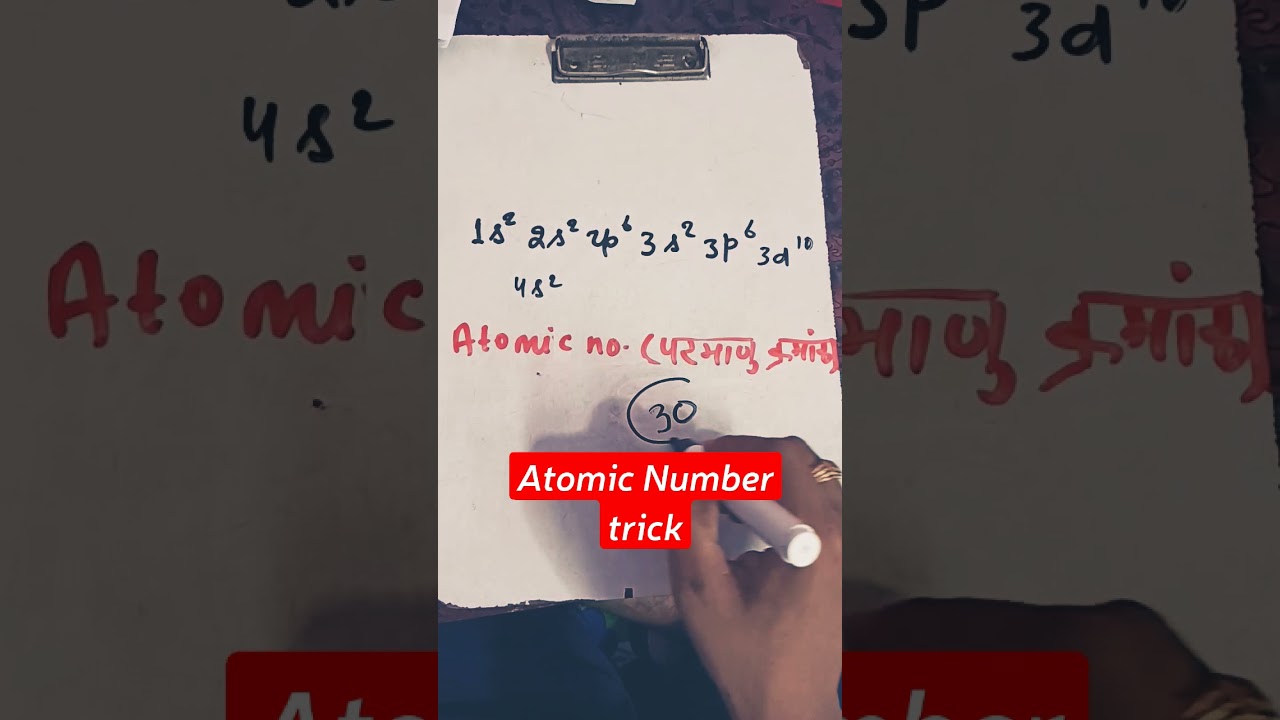 1s² 2s² 2p⁶ 3s² 3p⁶ 3d¹⁰
4s²
Atomic no. (परमाणु क्रमांक)
30
Atomic Number
trick